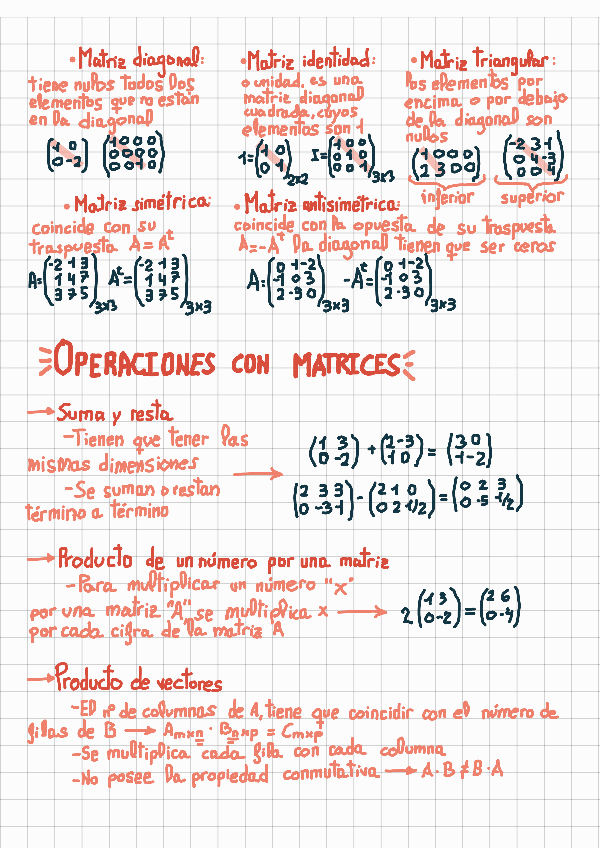 • Matriz diagonal:
tiene nulos todos los
elementos que no están
en la diagonal
(1 0 / 0 -2) (1 0 0 0 / 0 0 0 0 / 0 0 1 0)
• Matriz identidad:
o unidad, es una
matriz diagonal
cuadrada, cuyos
elementos son 1
I=(1 0 / 0 1)2x2 I=(1 0 0 / 0 1 0 / 0 0 1)3x3
• Matriz triangular:
los elementos por
encima o por debajo
de la diagonal son
nulos
(1 0 0 0 / 2 3 0 0) (-2 3 1 / 0 4 -3 / 0 0 1)
inferior superior
• Matriz simétrica:
coincide con su
traspuesta A=Aᵗ
A=(-2 1 3 / 1 4 7 / 3 7 5)3x3 Aᵗ=(-2 1 3 / 1 4 7 / 3 7 5)3x3
• Matriz antisimétrica:
coincide con la opuesta de su traspuesta
A=-Aᵗ la diagonal tienen que ser ceros
A=(0 1 -2 / -1 0 3 / 2 -3 0)3x3 -Aᵗ=(0 1 -2 / -1 0 3 / 2 -3 0)3x3
OPERACIONES CON MATRICES
→ Suma y resta
-Tienen que tener las
mismas dimensiones
-Se suman o restan
término a término
(1 3 / 0 -2) + (2 -3 / 1 0) = (3 0 / 1 -2)
(2 3 3 / 0 -3 1) - (2 1 0 / 0 2 1/2) = (0 2 3 / 0 -5 1/2)
→ Producto de un número por una matriz
-Para multiplicar un número "x"
por una matriz "A", se multiplica x →
por cada cifra de la matriz A
2 (1 3 / 0 -2) = (2 6 / 0 -4)
→ Producto de vectores
-El nº de columnas de A, tiene que coincidir con el número de
filas de B → Amxn · Bnxp = Cmxp
-Se multiplica cada fila con cada columna
-No posee la propiedad conmutativa → A·B≠B·A